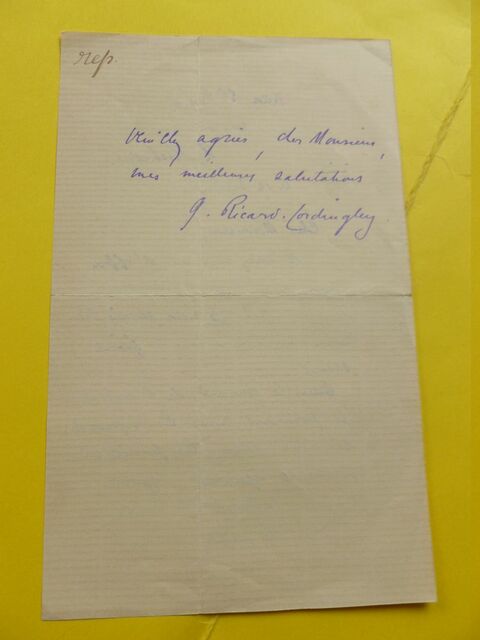 rep.
Veuillez agréer, cher Monsieur,
mes meilleures salutations
G. Ricard-Cordingley